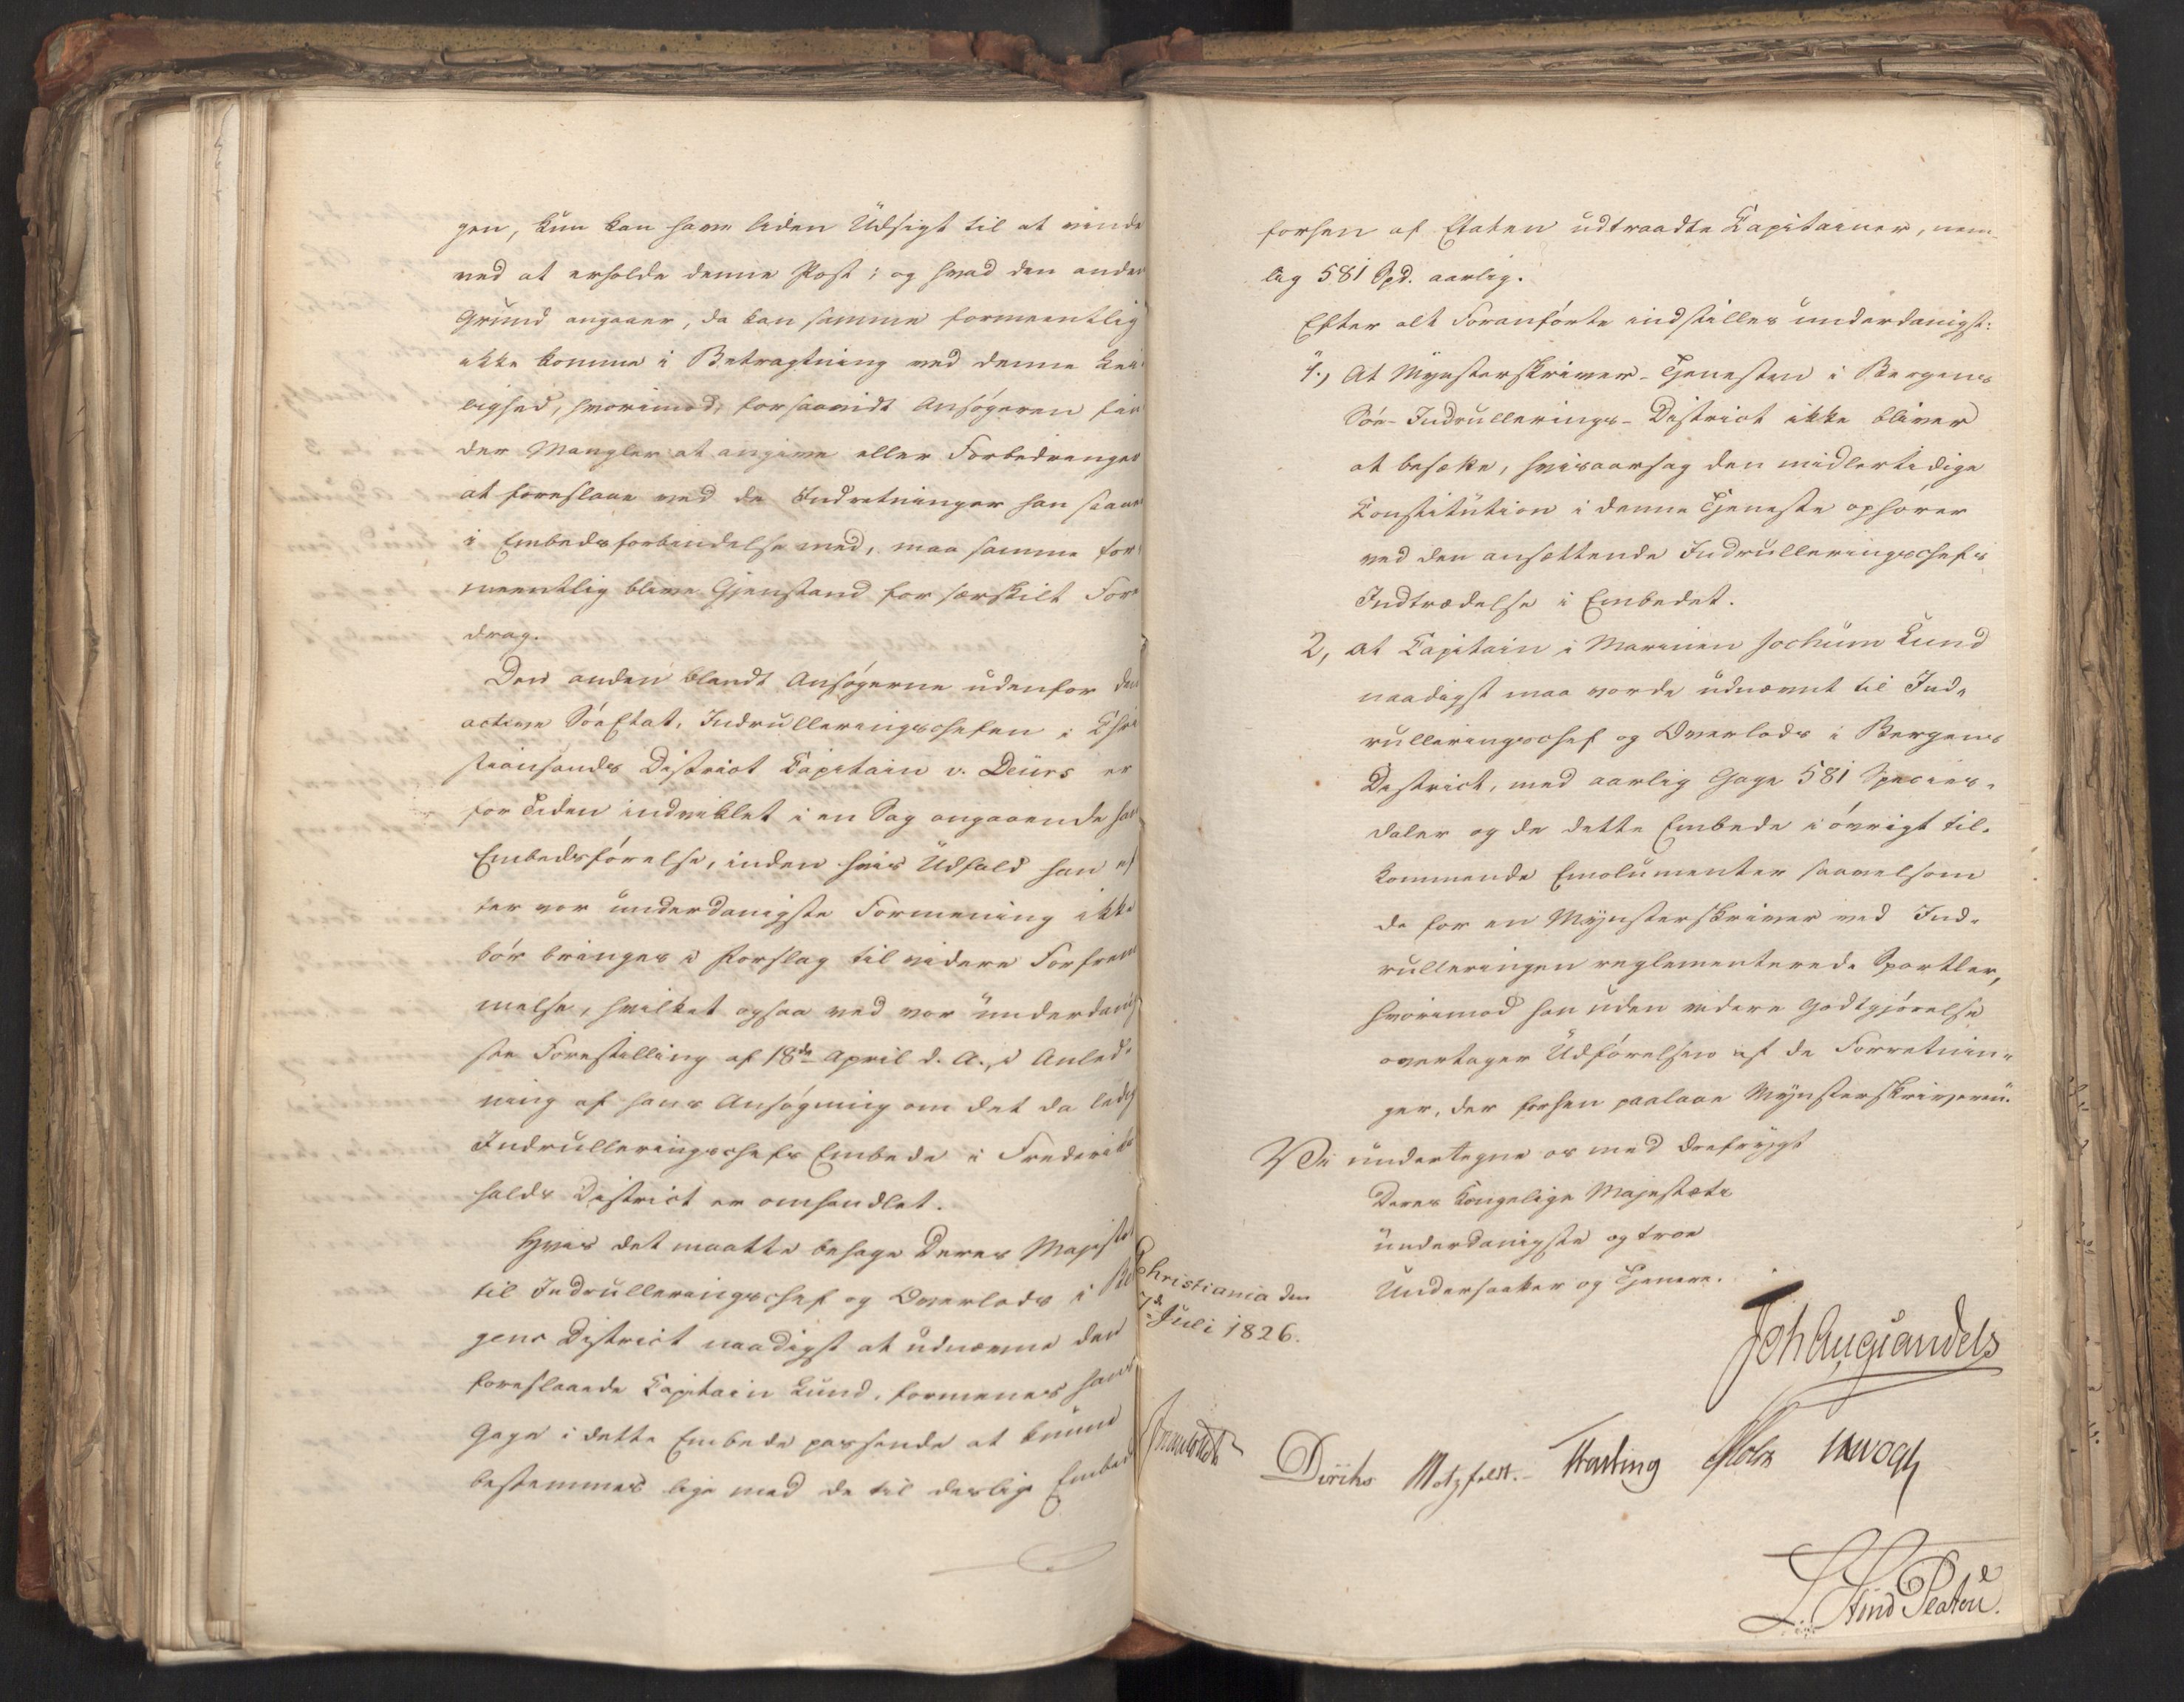 gen, kun kan have liden Udsigt til at vinde
ved at erholde denne Post; og hvad den anden
Grund angaaer, da kan samme formeentlig
ikke komme i Betragtning ved denne Lei
lighed, hvorimod, forsaavidt Ansøgeren fin
der Mangler at angive eller Forbedringer
at foreslaae ved de Indretninger han staaer
i Embedsforbindelse med, maa samme for
meentlig blive Gjenstand for særskilt Fore
drag.
Den anden blandt Ansøgerne udenfor den
active SøeEtat, Indrulleringschefen i Chri
stiansands District Capitain v. Deürs er
for Tiden indviklet i en Sag angaaende hans
Embedsførelse, inden hvis Udfald han ef
ter vor underdanigste Formening ikke
bør bringes i Forslag til videre Forfrem
melse, hvilket ogsaa ved vor underdanig
ste Forestilling af 18de April d. A., i Anled
ning af hans Ansøgning om det da ledig
Indrulleringschefs Embede i Frederiks
halds District er omhandlet.
Hvis det maatte behage Deres Majestet
til Indrulleringschef og Overlods i Ber
gens District naadigst at udnævne den
foreslaaede Capitain Lund, formenes hans
Gage i dette Embede passende at kunne
bestemmes lige med de til deslige Embed
forhen af Etaten udtraadte Capitainer, nem-
lig 581 Spd. aarlig.
Efter alt Foranførte indstilles underdanigst:
1., At Mynsterskriver-Tjenesten i Bergens
Søe-Indrullerings-District ikke bliver
at besætte, hvisaarsag den midlertidige
Constitution i denne Tjeneste ophører
ved den ansættende Indrulleringschefs
Indtrædelse i Embedet.
2, at Capitain i Marinen Jochum Lund
naadigst maa vorde udnævnt til Ind-
rulleringschef og Overlods i Bergens
District, med aarlig Gage 581 Species-
daler og de dette Embede i øvrigt til-
kommende Emolumenter saavelsom
de for en Mynsterskriver ved Ind-
rulleringen reglementerede Sportler,
hvorimod han uden videre Godtgjørelse
overtager Udførelsen af de Forretnin-
ger, der forhen paalaae Mynsterskriveren.
Vi undertegne os med Ærefrygt
Deres Kongelige Majestæts
underdanigste og troe
Undersaatter og Tjenere.
Christiania den
7de Juli 1826.
Joh Aug Sandels
Diriks Motzfeldt. Fasting Holst
L. Stud Platou.